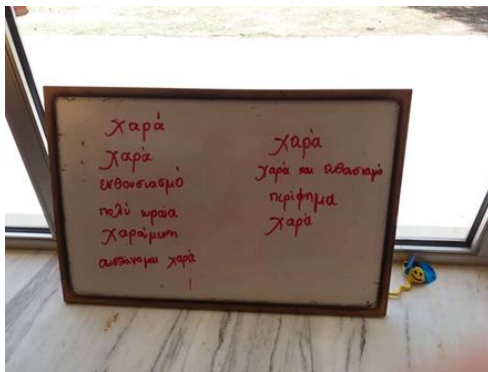 χαρά
χαρά
ενθουσιασμό
πολύ ωραία
χαρούμενη
αισθάνομαι χαρά
χαρά
χαρά και ενθουσιασμό
περίφημα
χαρά